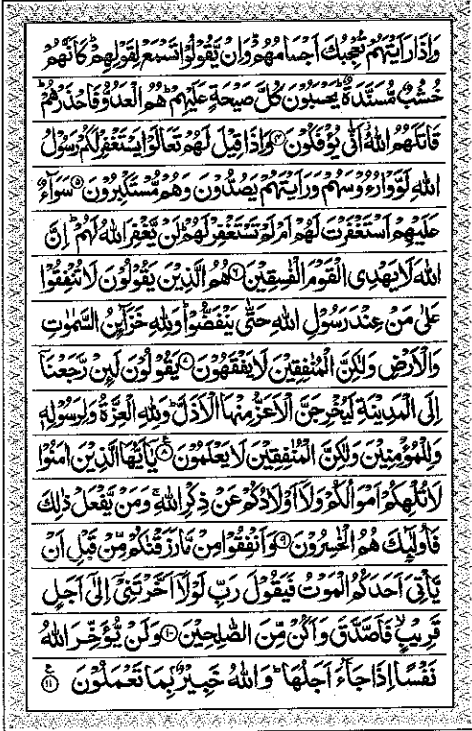 وَاِذَا رَاَيْتَهُمْ تُعْجِبُكَ اَجْسَامُهُمْ ؕ وَاِنْ يَّقُوْلُوْا تَسْمَعْ لِقَوْلِهِمْ ؕ كَاَنَّهُمْ
خُشُبٌ مُّسَنَّدَةٌ ؕ يَحْسَبُوْنَ كُلَّ صَيْحَةٍ عَلَيْهِمْ ؕ هُمُ الْعَدُوُّ فَاحْذَرْهُمْ ؕ
قَاتَلَهُمُ اللّٰهُ ؗ اَنّٰى يُؤْفَكُوْنَ ۴ وَاِذَا قِيْلَ لَهُمْ تَعَالَوْا يَسْتَغْفِرْ لَكُمْ رَسُوْلُ
اللّٰهِ لَوَّوْا رُءُوْسَهُمْ وَرَاَيْتَهُمْ يَصُدُّوْنَ وَهُمْ مُّسْتَكْبِرُوْنَ ۵ سَوَآءٌ
عَلَيْهِمْ اَسْتَغْفَرْتَ لَهُمْ اَمْ لَمْ تَسْتَغْفِرْ لَهُمْ ؕ لَنْ يَّغْفِرَ اللّٰهُ لَهُمْ ؕ اِنَّ
اللّٰهَ لَا يَهْدِى الْقَوْمَ الْفٰسِقِيْنَ ۶ هُمُ الَّذِيْنَ يَقُوْلُوْنَ لَا تُنْفِقُوْا
عَلٰى مَنْ عِنْدَ رَسُوْلِ اللّٰهِ حَتّٰى يَنْفَضُّوْا ؕ وَلِلّٰهِ خَزَآئِنُ السَّمٰوٰتِ
وَالْاَرْضِ وَلٰكِنَّ الْمُنٰفِقِيْنَ لَا يَفْقَهُوْنَ ۷ يَقُوْلُوْنَ لَئِنْ رَّجَعْنَاۤ
اِلَى الْمَدِيْنَةِ لَيُخْرِجَنَّ الْاَعَزُّ مِنْهَا الْاَذَلَّ ؕ وَلِلّٰهِ الْعِزَّةُ وَلِرَسُوْلِهٖ
وَلِلْمُؤْمِنِيْنَ وَلٰكِنَّ الْمُنٰفِقِيْنَ لَا يَعْلَمُوْنَ ۸ يٰۤاَيُّهَا الَّذِيْنَ اٰمَنُوْا
لَا تُلْهِكُمْ اَمْوَالُكُمْ وَلَاۤ اَوْلَادُكُمْ عَنْ ذِكْرِ اللّٰهِ ۚ وَمَنْ يَّفْعَلْ ذٰلِكَ
فَاُولٰٓئِكَ هُمُ الْخٰسِرُوْنَ ۹ وَاَنْفِقُوْا مِنْ مَّا رَزَقْنٰكُمْ مِّنْ قَبْلِ اَنْ
يَّاْتِىَ اَحَدَكُمُ الْمَوْتُ فَيَقُوْلَ رَبِّ لَوْلَاۤ اَخَّرْتَنِىْۤ اِلٰىۤ اَجَلٍ
قَرِيْبٍ ۙ فَاَصَّدَّقَ وَاَكُنْ مِّنَ الصّٰلِحِيْنَ ۱۰ وَلَنْ يُّؤَخِّرَ اللّٰهُ
نَفْسًا اِذَا جَآءَ اَجَلُهَا ؕ وَاللّٰهُ خَبِيْرٌۢ بِمَا تَعْمَلُوْنَ ۱۱